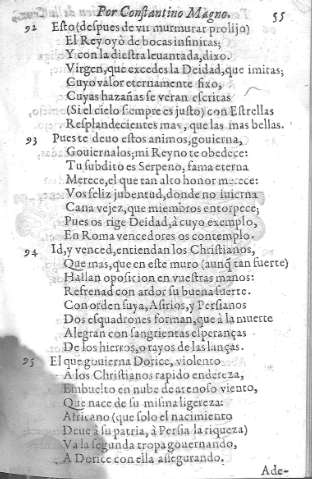 Por Constantino Magno. 55
92 Esto (despues de vn murmurar prolijo)
El Rey oyò de bocas infinitas;
Y con la diestra leuantada, dixo.
Virgen, que excedes la Deidad, que imitas;
Cuyo valor eternamente fixo,
Cuyas hazañas se veran escritas
(Si el cielo siempre es justo) con Estrellas
Resplandecientes mas, que las mas bellas.
93 Pues te deuo estos animos, gouierna,
Gouiernalos; mi Reyno te obedece:
Tu subdito es Serpeno, fama eterna
Merece, el que tan alto honor merece:
Vos feliz jubentud, donde no iuierna
Cana vejez, que miembros entorpece;
Pues os rige Deidad, à cuyo exemplo,
En Roma vencedores os contemplo.
94 Id, y venced, entiendan los Christianos,
Que mas, que en este muro (aunq̃ tan fuerte)
Hallan oposicion en vuestras manos:
Refrenad con ardor su buena suerte.
Con orden suya, Asirios, y Persianos
Dos esquadrones forman, que à la muerte
Alegran con sangrientas esperanças
De los hierros, o rayos de las lanças.
95 El que gouierna Dorice, violento
A los Christianos rapido endereza,
Embuelto en nube de arenoso viento,
Que nace de su misma ligereza:
Africano (que solo el nacimiento
Deue à su patria, à Persia la riqueza)
Va la segunda tropa gouernando,
A Dorice con ella asegurando.
Ade-